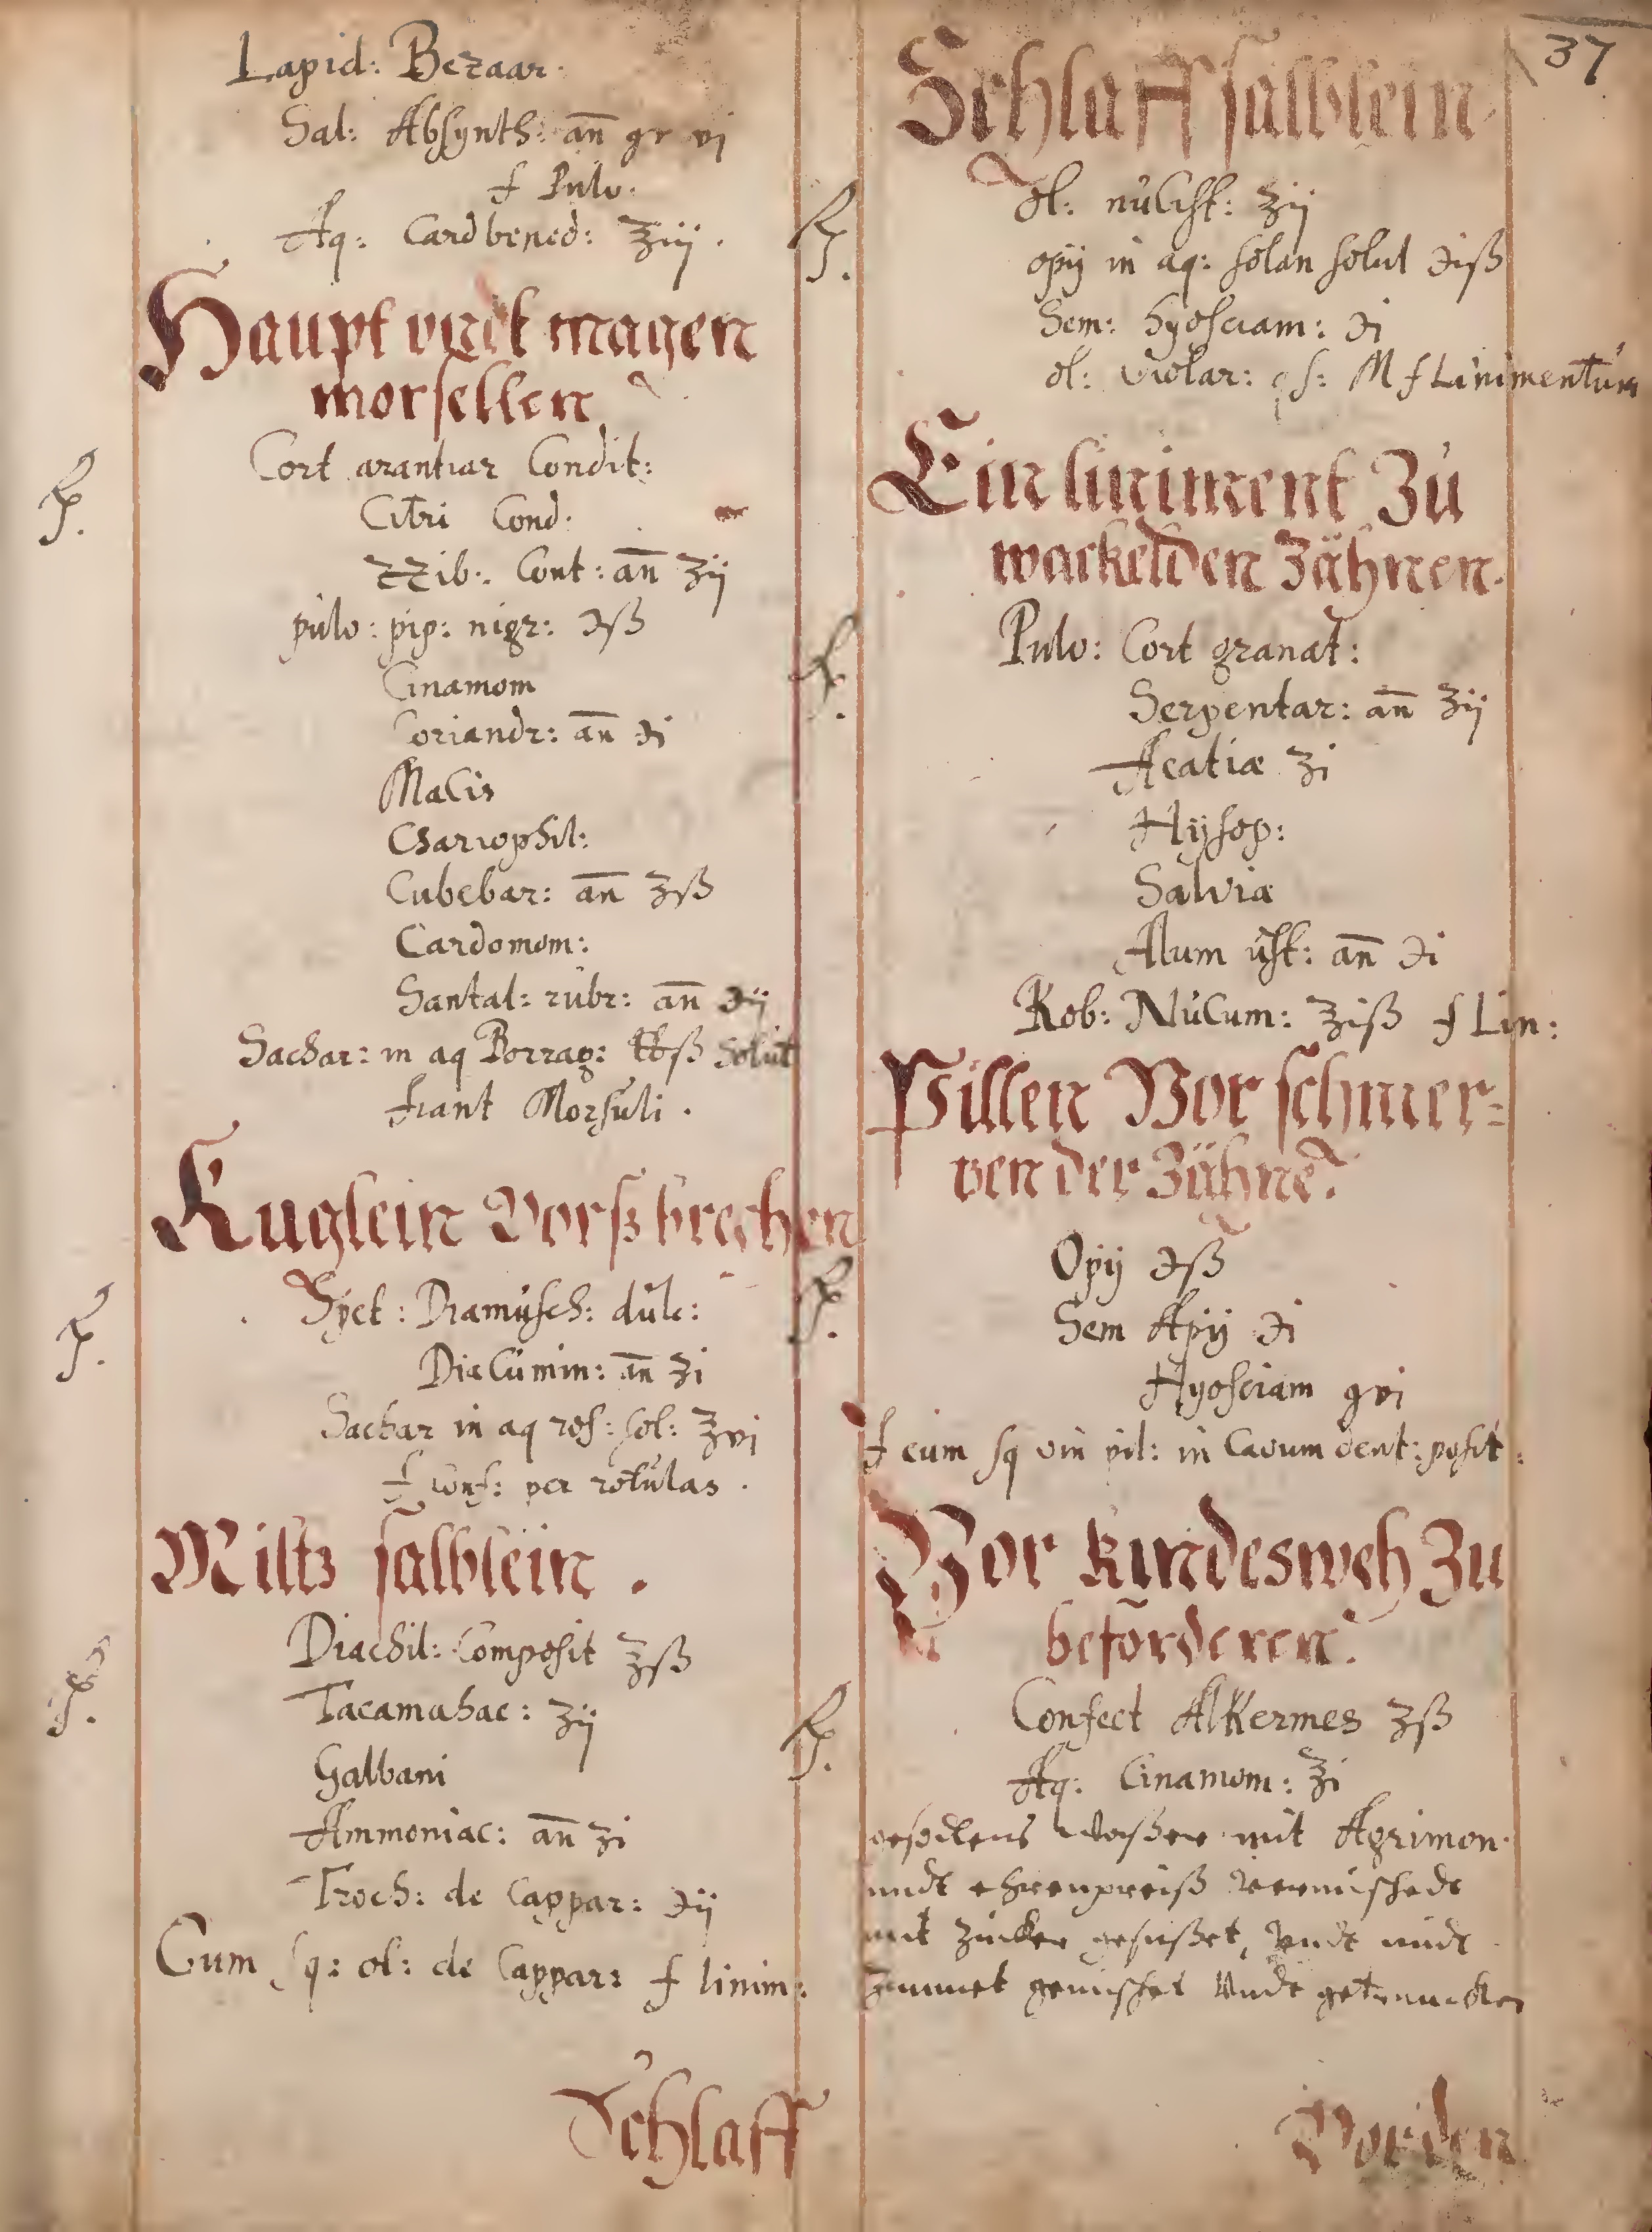 Lapid: Bezaar.
Sal: Absynth: an̄ gr vj
f Pulv.
Aq: Cardbened: ℥iij.
Haupt vndt magen
morsellen
℞. Cort arantiar Condit:
Citri Cond:
ZZib: Cont: an̄ ʒij
pulv: pip: nigr: ℈ß
Cinamom
Coriandr: an̄ ℈i
Macis
Chariophil:
Cubebar: an̄ ʒß
Cardomom:
Santal: rubr: an̄ ℈ij
Sachar: in aq Borrag: ℔ß solut
fiant Morsuli.
Kuglein Vorß brechen
℞. Spec: Diamusch: dulc:
Diacumin: an̄ ʒi
Sachar in aq ros: sol: ℥vi
f conf: per rotulas.
Miltz salblein.
℞. Diachil: Composit ℥ß
Tacamahac: ʒij
Galbani
Ammoniac: an̄ ʒi
Troch: de Cappar: ℈ij
Cum sq: ol: de Cappar: f linim:
Schlaff
37
Schlaff salblein
℞. Ol: nucist: ʒij
opij in aq: solan solut ℈iß
Sem: hyosciam: ℈i
ol: violar: qs: M f Linimentum
Ein liniment Zu
wackelden Zähnen.
℞. Pulv: Cort granat:
Serpentar: an̄ ʒij
Acatiæ ʒi
Hÿsop:
Salviæ
Alum ust: an̄ ℈i
Rob: Nucum: ℥iß f Lin:
Pillen Vor schmer=
zen der Zähne.
℞. Opij ℈ß
Sem Apij ℈i
Hyosciam gvi
f cum sq vin pil: in Cavum dent: posit:
Vor kindesweh Zu
beförderen.
℞. Confect AlKermes ʒß
Aq: Cinamom: ℥i
waßer mit Agrimon.
undt ehrenpreiß vermischedt
mit Zucker gesüßet, vndt midt
Zimmet gemischet vndt getruncken
Vor den